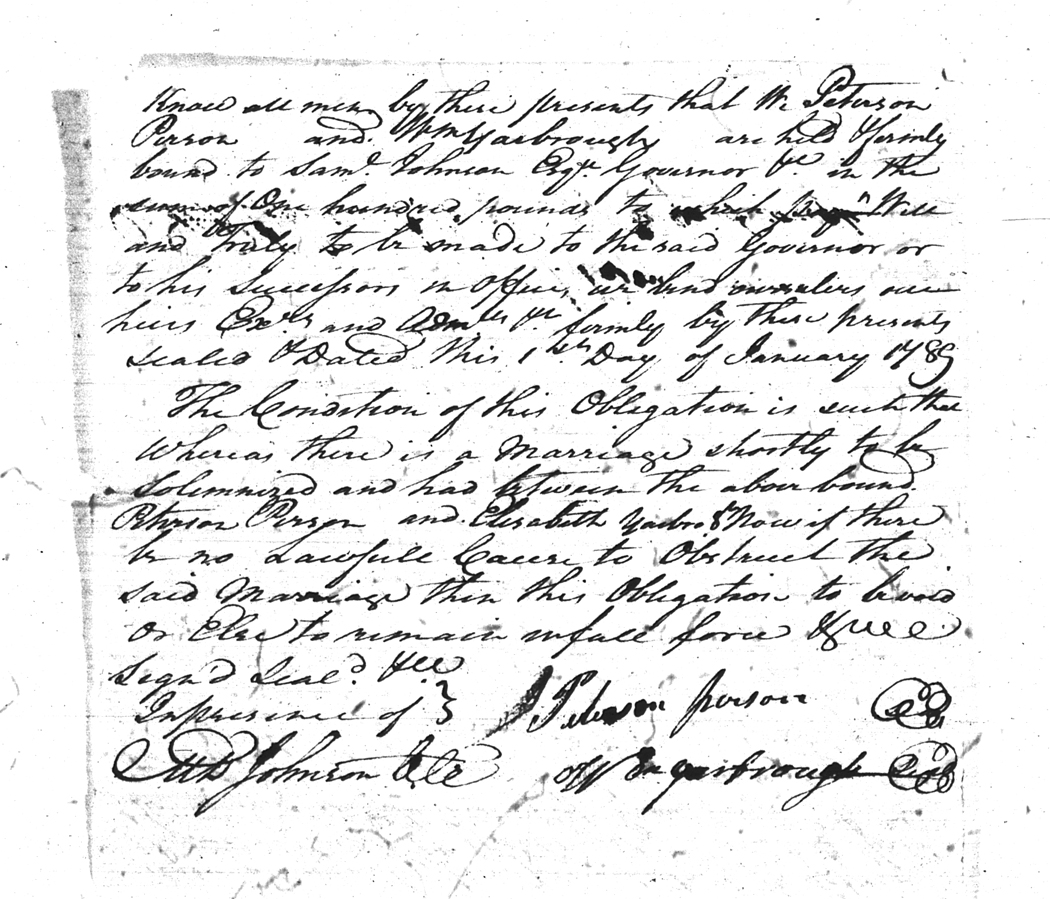 Know all men by these presents that We Peterson
Person and Wm Yarbrough are held & firmly
bound to Saml. Johnson Esqr. Governor &c. in the
sum of One hundred pounds to which paym Well
and truly to be made to the said Governor or
to his Successors in Office, we bind ourselves our
heirs Exrs and Admrs &c. firmly by these presents
Sealed & Dated this 1st Day of January 1789
The Condition of this Obligation is such that
Whereas there is a Marriage shortly to be
Solemnized and had between the above bound
Peterson Person and Elisabeth Yarbro & Now if there
be no Lawfull Cause to Obstruct the
said Marriage then this Obligation to be void
or Else to remain in full force
Sign'd Seal'd &c
In presence of } Peterson person
Johnson yarbrough